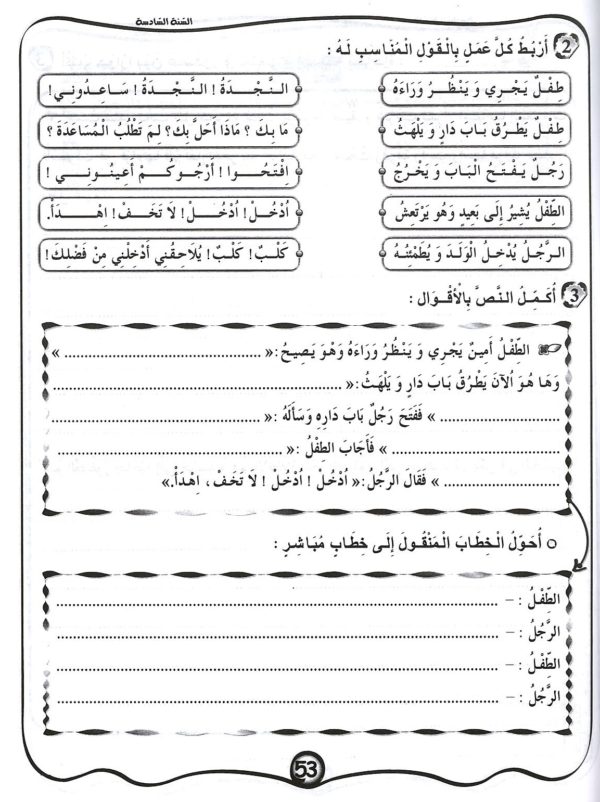 السّنة السّادسة
2 أَرْبُطُ كُلَّ عَمَلٍ بِالْقَوْلِ الْمُنَاسِبِ لَهُ :
طِفْلٌ يَجْرِي وَ يَنْظُرُ وَرَاءَهُ
النَّجْدَةُ ! النَّجْدَةُ ! سَاعِدُونِي !
طِفْلٌ يَطْرُقُ بَابَ دَارٍ وَ يَلْهَثُ
مَا بِكَ ؟ مَاذَا أَحَلَّ بِكَ؟ لِمَ تَطْلُبُ الْمُسَاعَدَةَ ؟
رَجُلٌ يَفْتَحُ الْبَابَ وَ يَخْرُجُ
اِفْتَحُوا ! أَرْجُوكُمْ أَعِينُونِي !
الطِّفْلُ يُشِيرُ إِلَى بَعِيدٍ وَهُو يَرْتَعِشُ
اُدْخُلْ! اُدْخُلْ! لاَ تَخَفْ! اِهْدَأْ.
الرَّجُلُ يُدْخِلُ الْوَلَدَ وَ يُطَمْئِنُهُ
كَلْبٌ! كَلْبٌ! يُلاَحِقُنِي أَدْخِلْنِي مِنْ فَضْلِكَ!
3 أُكَمِّلُ النَّصَّ بِالْأَقْوَالِ :
الطِّفْلُ أَمِينٌ يَجْرِي وَ يَنْظُرُ وَرَاءَهُ وَهْوَ يَصِيحُ :« .......................... »
وَهَا هُوَ اُلآنَ يَطْرُقُ بَابَ دَارٍ وَ يَلْهَثُ:« ..........................
.......................... » فَفَتَحَ رَجُلٌ بَابَ دَارِهِ وَسَأَلَهُ :« ..........................
.......................... » فَأَجَابَ الطِّفْلُ :« ..........................
.......................... » فَقَالَ الرَّجُلُ:« اُدْخُلْ ! اُدْخُلْ ! لاَ تَخَفْ ، اِهْدَأْ.»
○ أُحَوِّلُ الْخِطَابَ الْمَنْقُولَ إِلَى خِطَابٍ مُبَاشِرٍ :
الطِّفْلُ : – ..........................
الرَّجُلُ : – ..........................
الطِّفْلُ : – ..........................
الرَّجُلُ : – ..........................
53